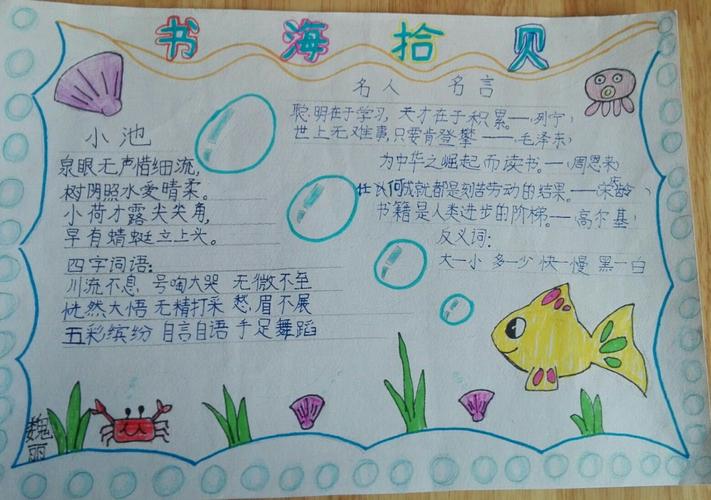 书海拾贝
小池
泉眼无声惜细流,
树阴照水爱晴柔。
小荷才露尖尖角,
早有蜻蜓立上头。
四字词语:
川流不息 号啕大哭 无微不至
恍然大悟 无精打采 愁眉不展
五彩缤纷 自言自语 手足舞蹈
名人 名言
聪明在于学习,天才在于积累。——(列宁)
世上无难事,只要肯登攀——(毛泽东)
为中华之崛起而读书。——(周恩来)
任何成就都是刻苦劳动的结果。——(宋庆龄)
书籍是人类进步的阶梯。——(高尔基)
反义词:
大—小 多—少 快—慢 黑—白
魏
丽